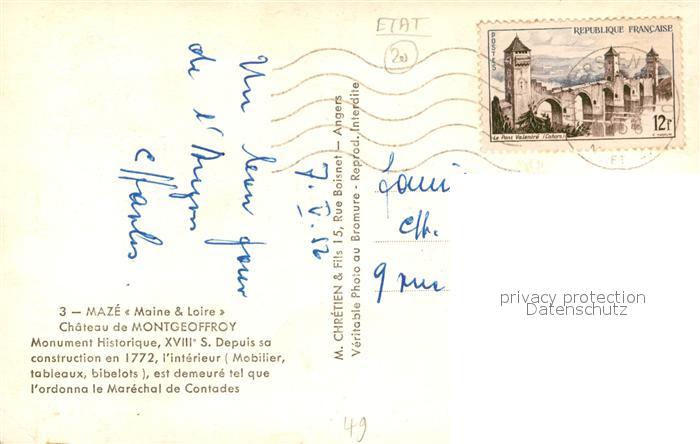 ETAT
20
RÉPUBLIQUE FRANÇAISE
POSTES
12F
Le Pont Valentré (Cahors)
Un beau jour
de l'Anjou
Charles
7. V. 56
9 rue
3 — MAZÉ « Maine & Loire »
Château de MONTGEOFFROY
Monument Historique, XVIII° S. Depuis sa
construction en 1772, l'intérieur ( Mobilier,
tableaux, bibelots ), est demeuré tel que
l'ordonna le Maréchal de Contades
M. CHRÉTIEN & Fils 15, Rue Boisnet — Angers
Véritable Photo au Bromure - Reprod. Interdite
privacy protection
Datenschutz
49